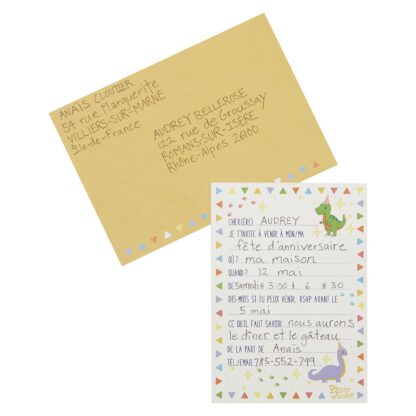 ANAÏS CLOUTIER
54 rue Marguerite
VILLIERS-SUR-MARNE
Île-de-France
AUDREY BELLEROSE
122 rue de Groussay
ROMANS-SUR-ISÈRE
Rhône-Alpes 26100
CHER(ÈRE) AUDREY
JE T'INVITE À VENIR À MON/MA
fête d'anniversaire
OÙ? ma maison
QUAND? 12 mai
DE samedi H 3:00 À 6 H 30
DIS-MOIS SI TU PEUX VENIR. RSVP AVANT LE
5 mai
CE QU'IL FAUT SAVOIR nous aurons
le dîner et le gâteau
DE LA PART DE Anaïs
TÉL./EMAIL 785-552-799